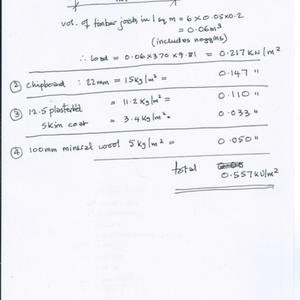 vol. of timber joists in 1 sq m = 6 x 0.05 x 0.2
= 0.06 m³
(includes noggins)
∴ Load = 0.06 x 370 x 9.81 = 0.217 KN/m²
② chipboard : 22mm = 15 kg/m² = 0.147 "
③ 12.5 plasterbd = 11.2 kg/m² = 0.110 "
skim coat = 3.4 kg/m² = 0.033 "
④ 100mm mineral wool 5 kg/m² = 0.050 "
total
0.557 KN/m²